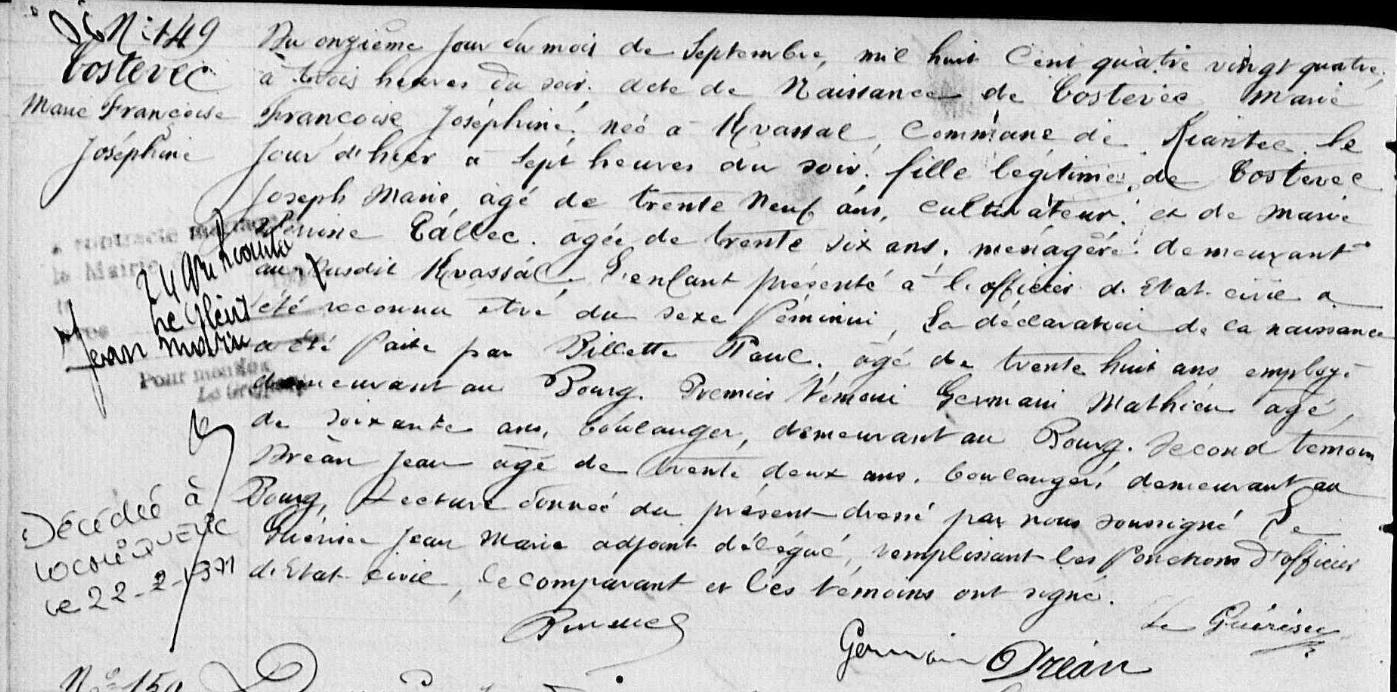 N° 149
Costevec
Marie Françoise
Joséphine
Du onzième jour du mois de Septembre, mil huit Cent quatre vingt quatre,
à trois heures du soir. Acte de Naissance de Costevec Marie
Françoise Joséphine, née à Kvassal, Commune de Riantec le
jour d'hier à Sept heures du soir, fille légitime de Costevec
Joseph Marie âgé de trente Neuf ans, cultivateur, et de Marie
Perrine Tallec. âgée de trente six ans, ménagère demeurant
au susdit Kvassal. L'enfant présenté à l'officier d'Etat civil a
été reconnu être du sexe féminin, La déclaration de la naissance
a été faite par Billette Paul. âgé de trente huit ans employé
demeurant au Bourg. Premier témoin Germain Mathieu âgé
de soixante ans, boulanger, demeurant au Bourg. Second témoin
Dréan Jean âgé de trente deux ans, boulanger, demeurant au
Bourg, Lecture donnée du présent dressé par nous soussigné Le
Guériser Jean Marie adjoint délégué, remplissant les fonctions d'officier
d'Etat civil, le comparant et les témoins ont signé.
a contracté
la Mairie
Jean Marie
Pour mention
Décédée à
le 22-2-1971
Germain Dréan
Le
N° 150